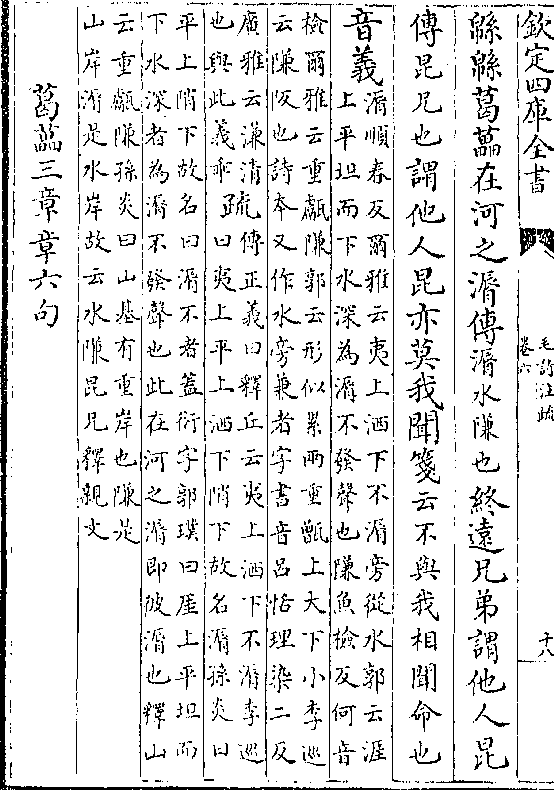 欽定四庫全書
毛詩注疏
卷六
十八
緜緜葛藟在河之漘傳漘水隒也終遠兄弟謂他人昆
傳昆兄也謂他人昆亦莫我聞箋云不與我相聞命也
音義
漘順春反爾雅云夷上洒下不漘旁從水郭云涯
上平坦而下水深為漘不發聲也隒魚檢反何音
檢爾雅云重甗隒郭云形似累兩重甑上大下小李巡
云隒阪也詩本又作水旁兼者字書音呂恬理染二反
廣雅云溓清疏傳正義曰釋丘云夷上洒下不漘李巡
也與此義乖疏曰夷上平上洒下陗下故名漘孫炎曰
平上陗下故名曰漘不者蓋衍字郭璞曰厓上平坦而
下水深者為漘不發聲也此在河之漘即彼漘也釋山
云重甗隒孫炎曰山基有重岸也隒是
山岸漘是水岸故云水隒昆兄釋親文
葛藟三章章六句